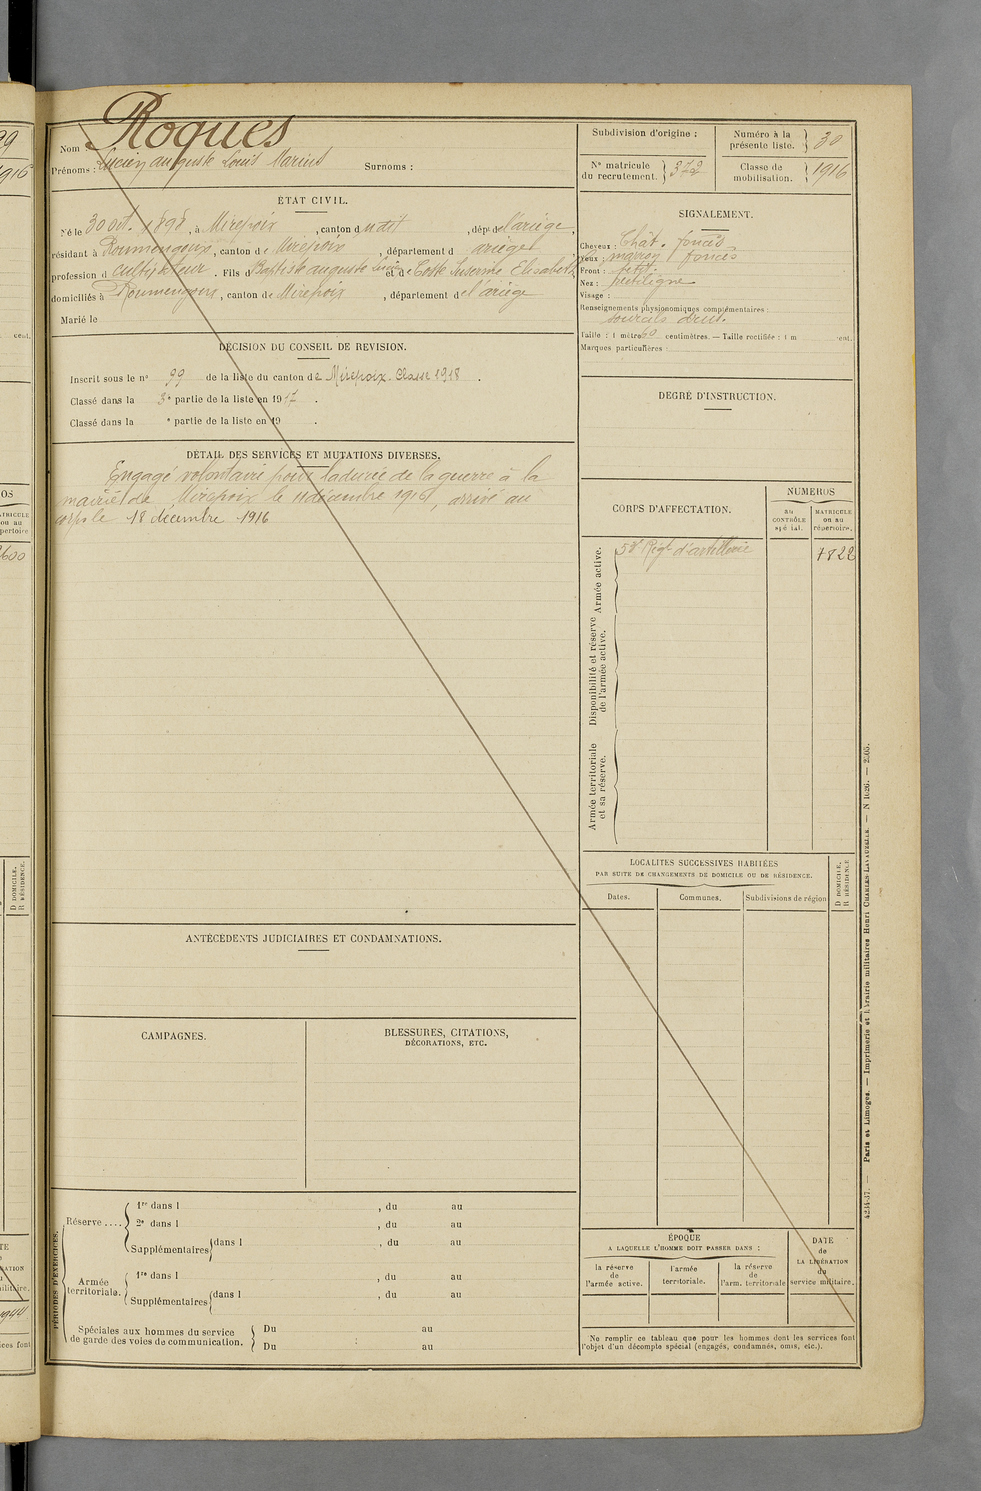 Roques
Nom :
Prénoms : Lucien auguste Louis Marius Surnoms :
ÉTAT CIVIL.
Né le 30 oct. 1898, à Mirepoix, canton d udit, dépt de l'ariège,
résidant à Roumengoux, canton de Mirepoix, département d ariège
profession d cultivateur. Fils d Baptiste auguste Lucien et de Coste Séverine Elisabeth
domiciliés à Roumengoux, canton de Mirepoix, département de l'ariège
Marié le
DÉCISION DU CONSEIL DE REVISION.
Inscrit sous le n° 99 de la liste du canton de Mirepoix. Classe 1918.
Classé dans la 3e partie de la liste en 1917.
Classé dans la e partie de la liste en 19 .
DÉTAIL DES SERVICES ET MUTATIONS DIVERSES.
Engagé volontaire pour la durée de la guerre à la
mairie de Mirepoix le 11 décembre 1916, arrivé au
corps le 18 décembre 1916
ANTÉCÉDENTS JUDICIAIRES ET CONDAMNATIONS.
CAMPAGNES.
BLESSURES, CITATIONS,
DÉCORATIONS, ETC.
PÉRIODES D'EXERCICES.
Réserve ....
1re dans l , du au
2e dans l , du au
Supplémentaires dans l , du au
Armée
territoriale.
1re dans l , du au
Supplémentaires dans l , du au
Spéciales aux hommes du service
de garde des voies de communication.
Du au
Du au
Subdivision d'origine :
Numéro à la
présente liste. 30
N° matricule
du recrutement. 372
Classe de
mobilisation. 1916
SIGNALEMENT.
Cheveux : Chât. foncés
Yeux : marron foncés
Front : petit.
Nez : rectiligne
Visage :
Renseignements physionomiques complémentaires :
sourcils droit.
Taille : 1 mètre 60 centimètres. — Taille rectifiée : 1 m cent.
Marques particulières :
DEGRÉ D'INSTRUCTION.
CORPS D'AFFECTATION.
NUMÉROS
au
CONTRÔLE
spécial.
MATRICULE
ou au
répertoire.
Armée active.
Régt d'artillerie
7822
Disponibilité et réserve
de l'armée active.
Armée territoriale
et sa réserve.
LOCALITÉS SUCCESSIVES HABITÉES
PAR SUITE DE CHANGEMENTS DE DOMICILE OU DE RÉSIDENCE.
Dates.
Communes.
Subdivisions de région
D DOMICILE.
R RÉSIDENCE.
ÉPOQUE
A LAQUELLE L'HOMME DOIT PASSER DANS :
la réserve
de
l'armée active.
l'armée
territoriale.
la réserve
de
l'arm. territoriale
DATE
de
LA LIBÉRATION
du
service militaire.
Ne remplir ce tableau que pour les hommes dont les services font
l'objet d'un décompte spécial (engagés, condamnés, omis, etc.).
Paris et Limoges. — Imprimerie et Librairie militaires Henri CHARLES-LAVAUZELLE.